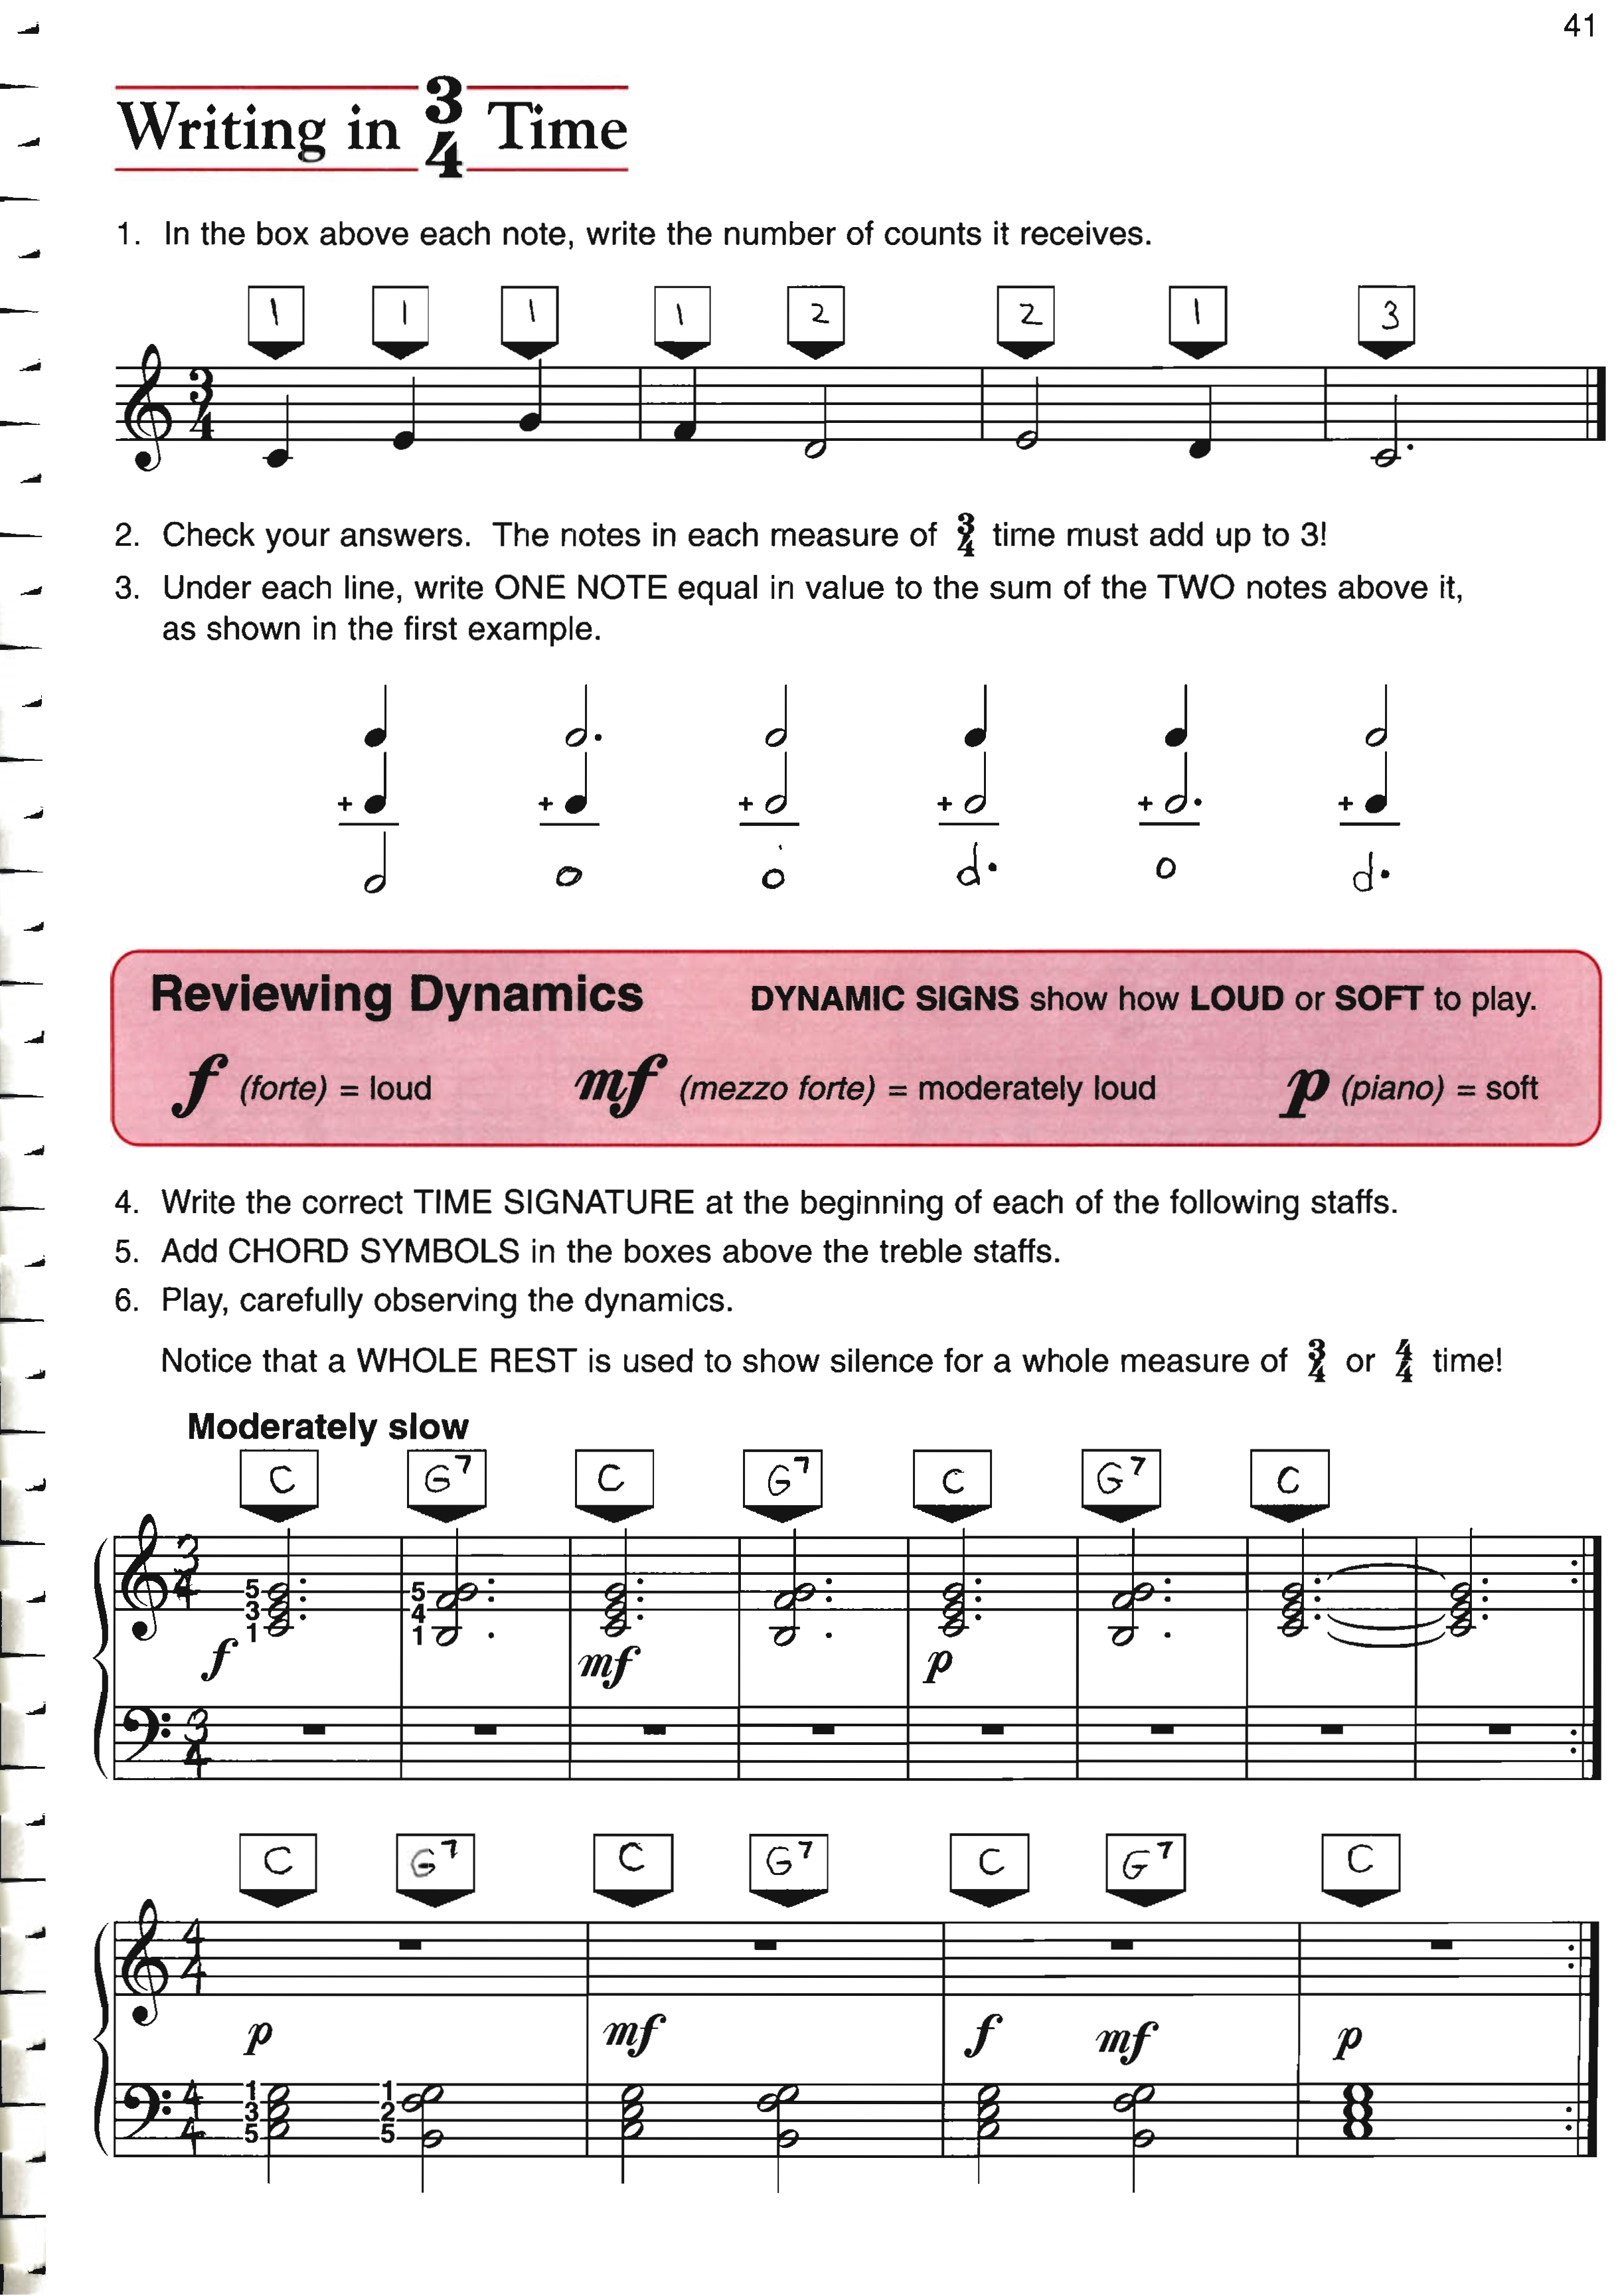 41
Writing in 3/4 Time
1. In the box above each note, write the number of counts it receives.
1 1 1 1 2 2 1 3
3
4
2. Check your answers. The notes in each measure of 3/4 time must add up to 3!
3. Under each line, write ONE NOTE equal in value to the sum of the TWO notes above it,
as shown in the first example.
+ + + + + +
Reviewing Dynamics DYNAMIC SIGNS show how LOUD or SOFT to play.
f (forte) = loud mf (mezzo forte) = moderately loud p (piano) = soft
4. Write the correct TIME SIGNATURE at the beginning of each of the following staffs.
5. Add CHORD SYMBOLS in the boxes above the treble staffs.
6. Play, carefully observing the dynamics.
Notice that a WHOLE REST is used to show silence for a whole measure of 3/4 or 4/4 time!
Moderately slow
C G7 C G7 C G7 C
3
4
5 5
3 4
1 1
f mf p
3
4
C G7 C G7 C G7 C
4
4
p mf f mf p
4
4
1 1
3 2
5 5